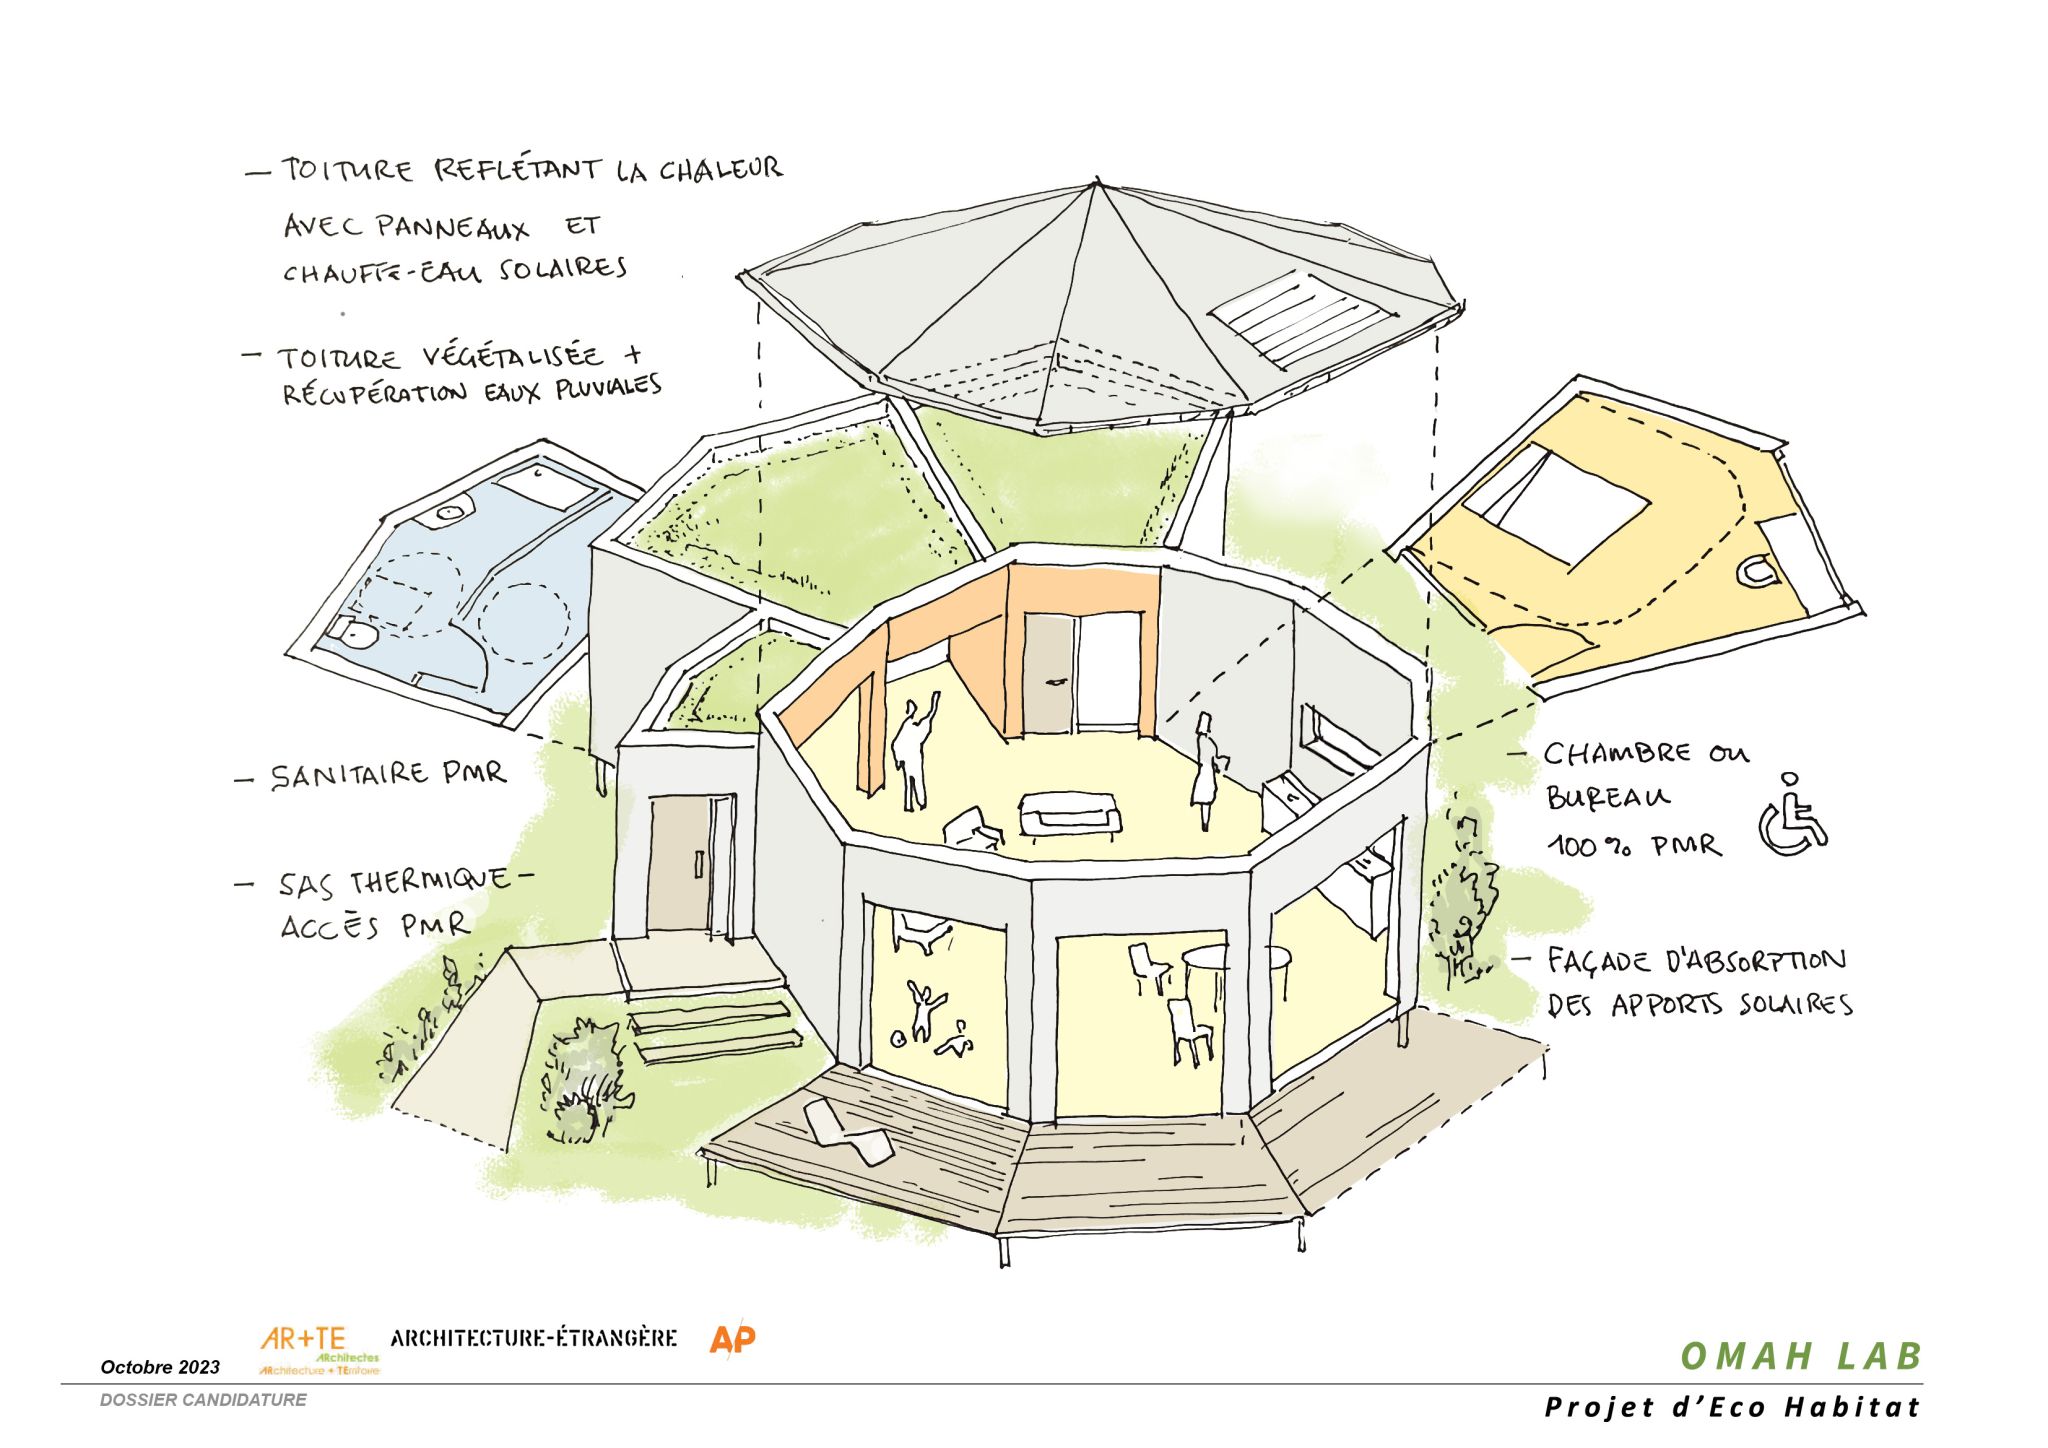 — TOITURE REFLÉTANT LA CHALEUR
AVEC PANNEAUX ET
CHAUFFE-EAU SOLAIRES
— TOITURE VÉGÉTALISÉE +
RÉCUPÉRATION EAUX PLUVIALES
— SANITAIRE PMR
— SAS THERMIQUE —
ACCÈS PMR
— CHAMBRE OU
BUREAU
100% PMR
— FAÇADE D'ABSORPTION
DES APPORTS SOLAIRES
Octobre 2023
DOSSIER CANDIDATURE
AR+TE
ARchitectes
ARchitecture + TErritoire
ARCHITECTURE-ÉTRANGÈRE
AP
OMAH LAB
Projet d'Eco Habitat